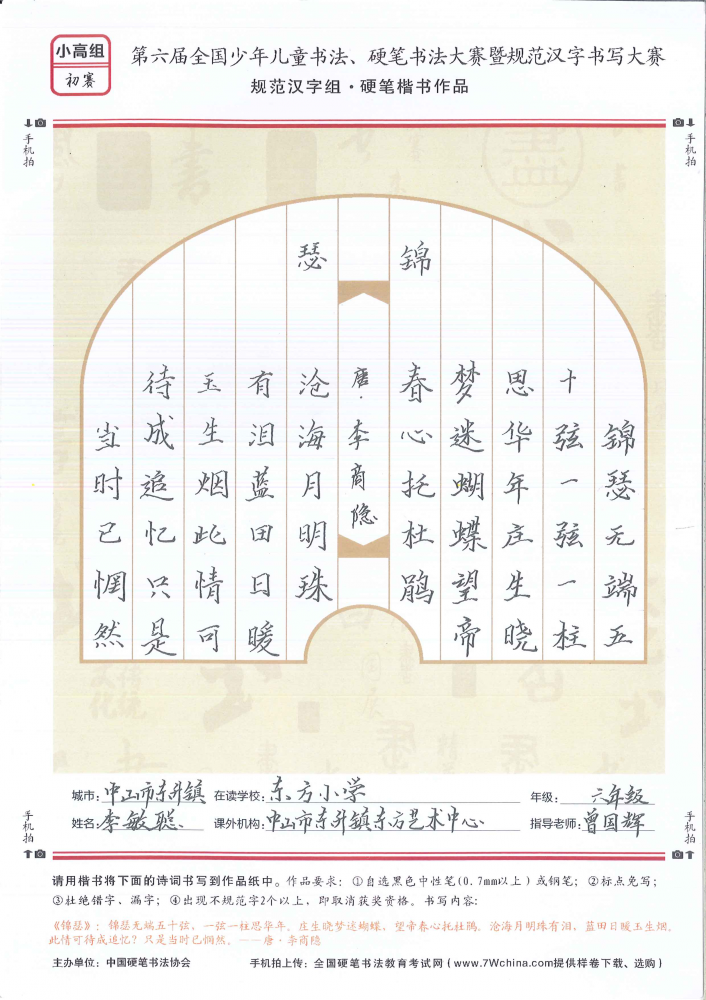 小高组
初赛
第六届全国少年儿童书法、硬笔书法大赛暨规范汉字书写大赛
规范汉字组·硬笔楷书作品
手机拍
手机拍
锦瑟
锦瑟无端五
十弦一弦一柱
思华年庄生晓
梦迷蝴蝶望帝
春心托杜鹃
唐·李商隐
沧海月明珠
有泪蓝田日暖
玉生烟此情可
待成追忆只是
当时已惘然
手机拍
手机拍
城市:中山市东升镇 在读学校:东方小学 年级:六年级
姓名:李敏聪 课外机构:中山市东升镇东方艺术中心 指导老师:曾国辉
请用楷书将下面的诗词书写到作品纸中。作品要求:①自选黑色中性笔(0.7mm以上)或钢笔;②标点免写;
③杜绝错字、漏字;④出现不规范字2个以上,即取消获奖资格。书写内容:
《锦瑟》:锦瑟无端五十弦,一弦一柱思华年。庄生晓梦迷蝴蝶,望帝春心托杜鹃。沧海月明珠有泪,蓝田日暖玉生烟。
此情可待成追忆?只是当时已惘然。——唐·李商隐
主办单位:中国硬笔书法协会 手机拍上传:全国硬笔书法教育考试网(www.7Wchina.com提供样卷下载、选购)